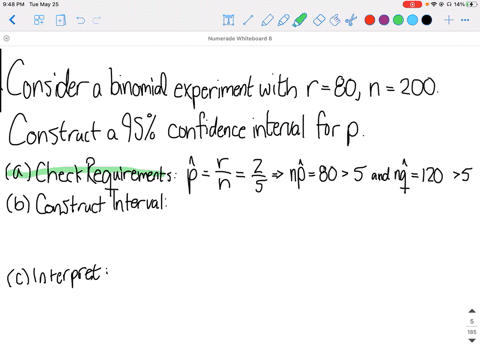 9:48 PM Tue May 25
14%
Numerade Whiteboard B
Consider a binomial experiment with r = 80, n = 200.
Construct a 95% confidence interval for p.
(a) Check Requirements: p̂ = r/n = 2/5 ⇒ np̂ = 80 > 5 and nq̂ = 120 > 5
(b) Construct Interval:
(c) Interpret:
5
185